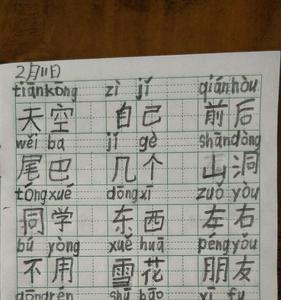 2月11日
tiānkōng zì jǐ qiánhòu
天空 自己 前后
wěi ba jǐ gè shāndòng
尾巴 几个 山洞
tóngxué dōngxī zuǒ yòu
同学 东西 左右
bú yòng xuě huā péngyǒu
不用 雪花 朋友
dōngrén shū bāo